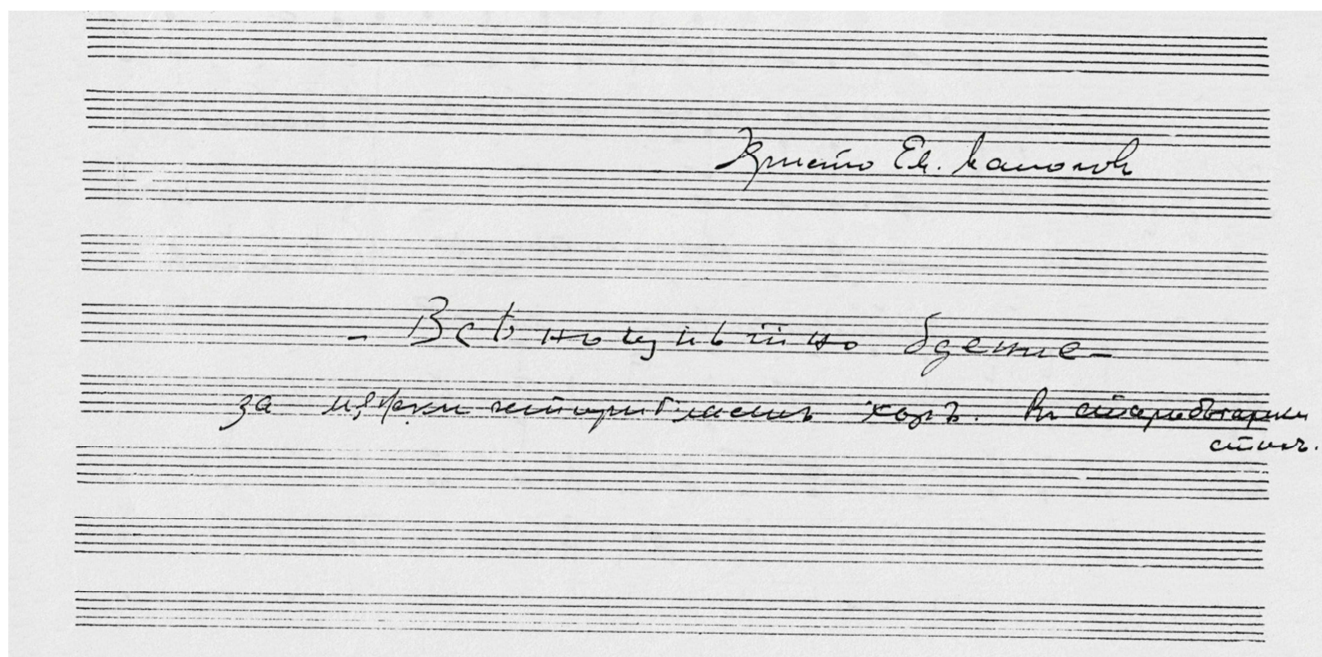 Христо Ев. Маноловъ
бдение –
за мѫжки четиригласенъ хоръ. Въ старобългарски
стилъ.